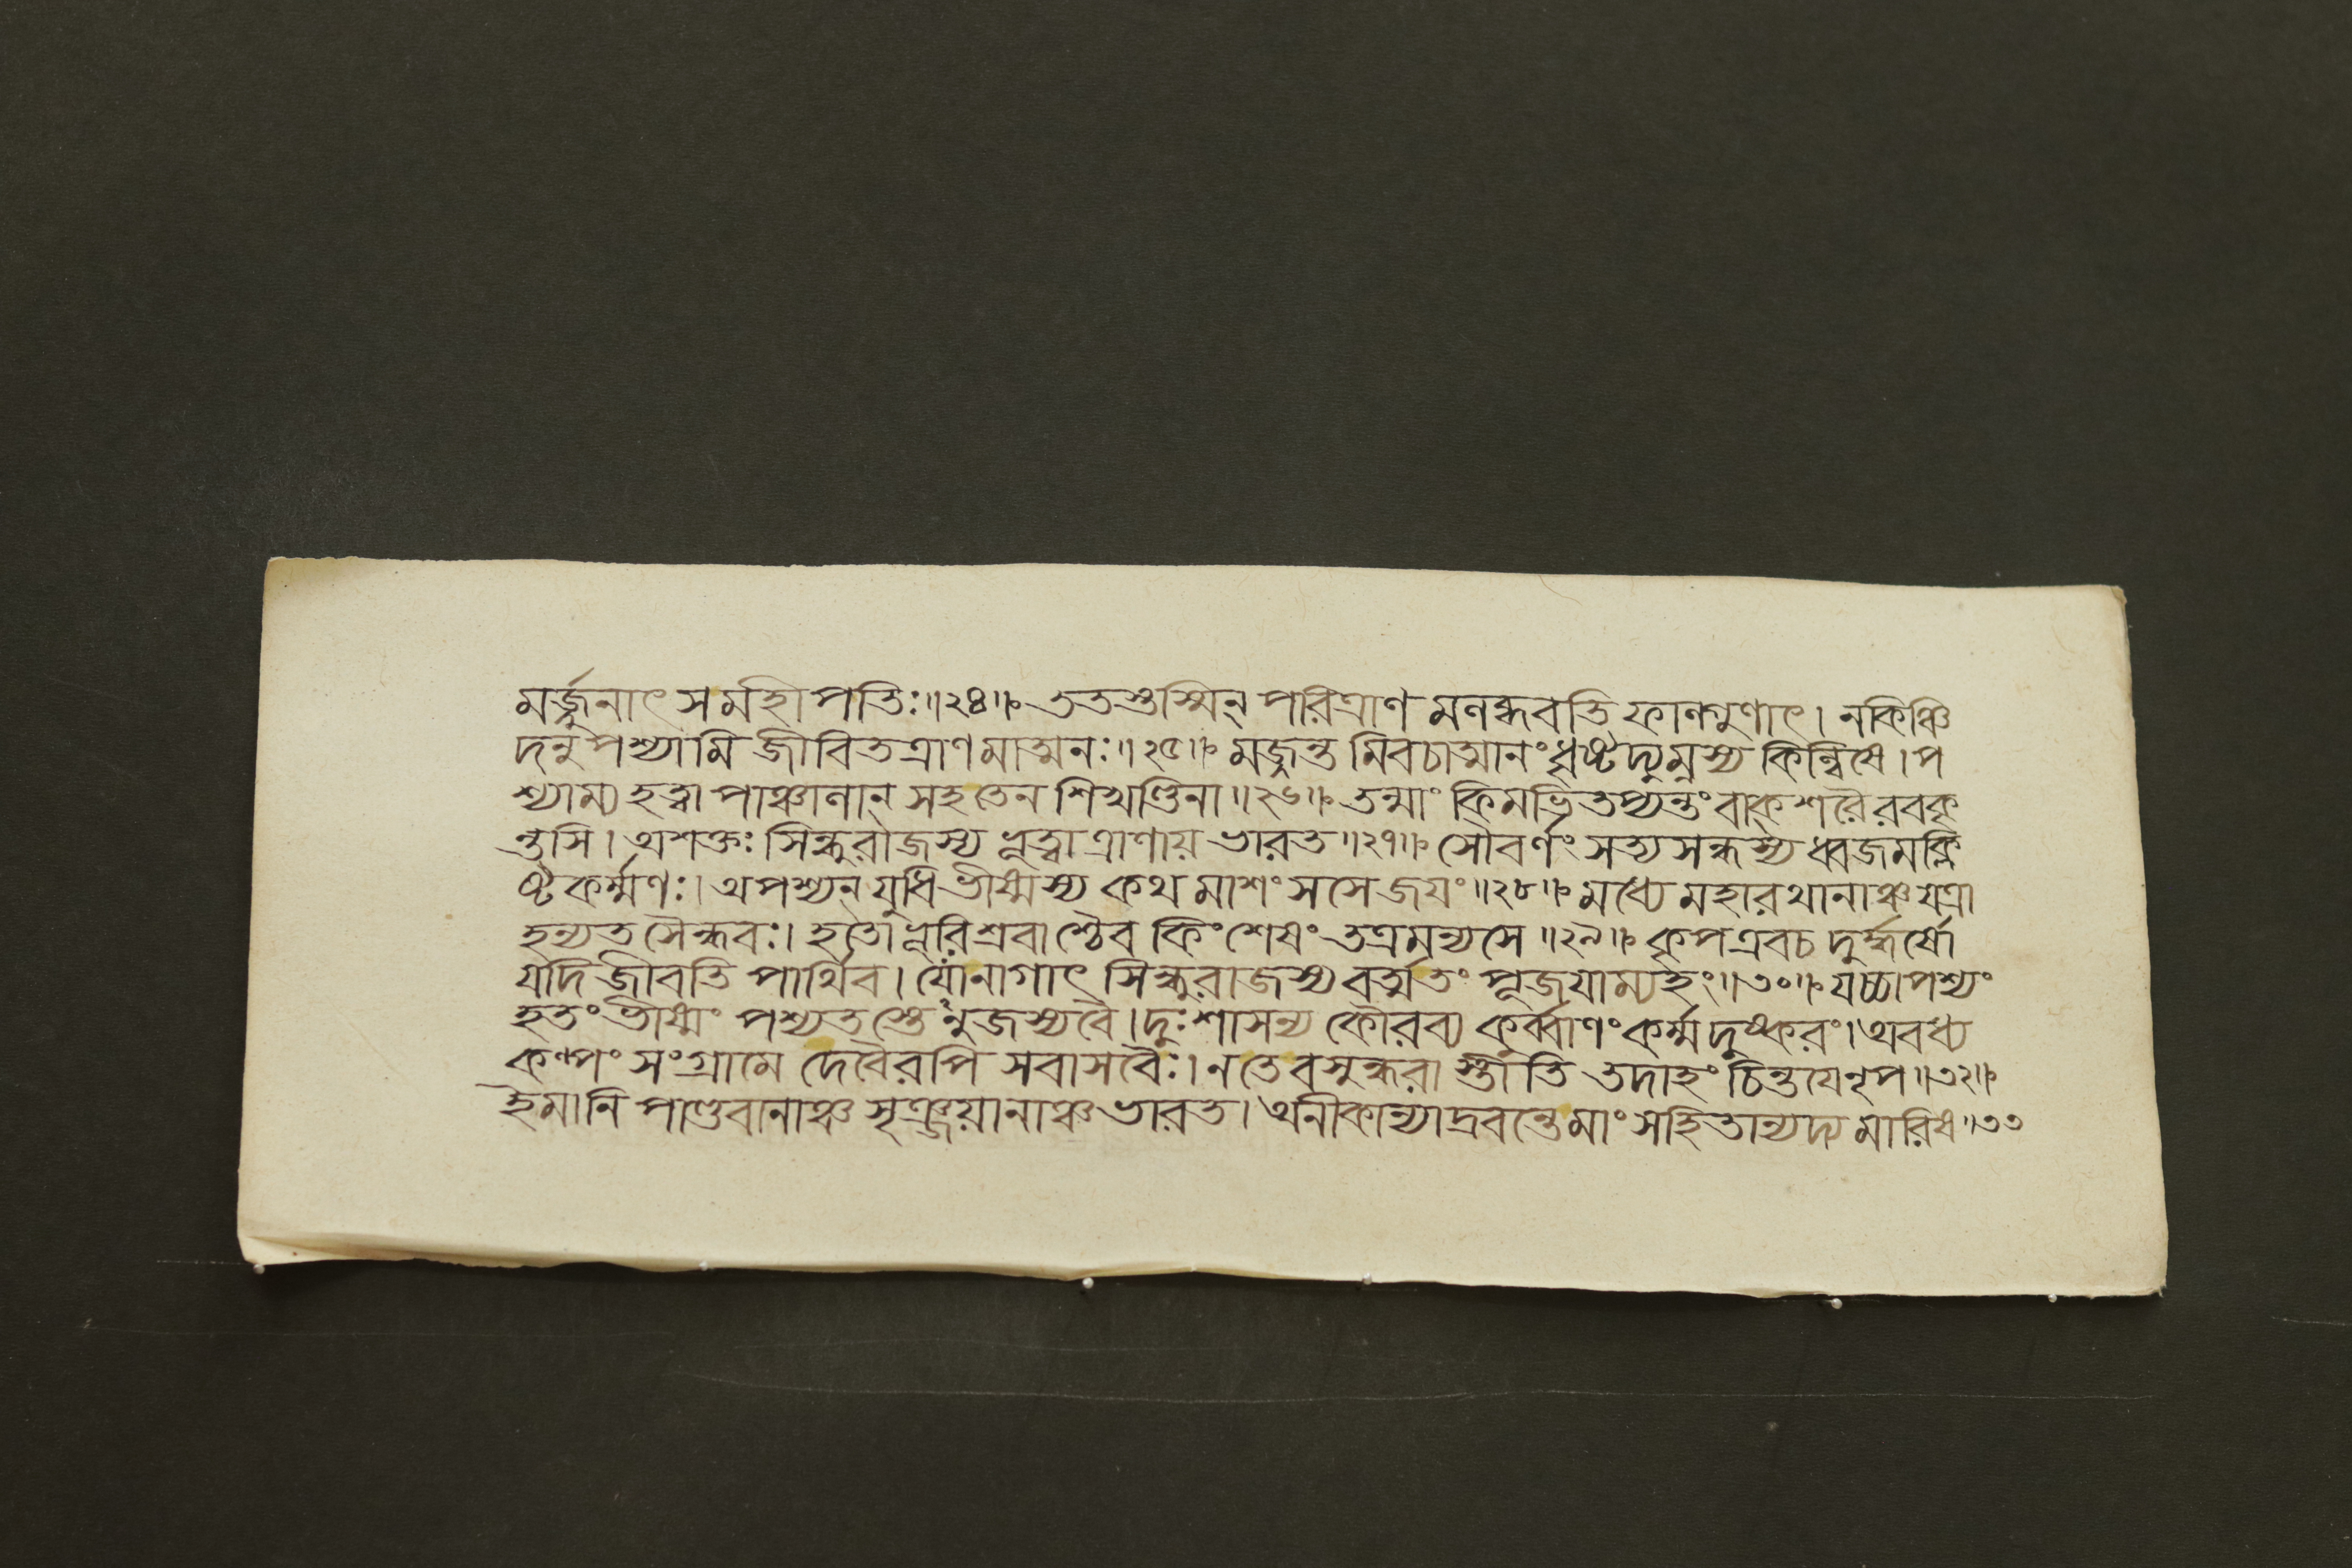 মর্জ্জুনাৎ সমহীপতিঃ॥২৪॥ ততস্তস্মিন্ পরিত্রাণ মলব্ধবতি ফাল্গুণাৎ। নকিঞ্চি
দনুপশ্যামি জীবিতত্রাণমাত্মনঃ॥২৫॥ মজ্জন্ত মিবচাত্মানং ধৃষ্টদ্যুম্নস্য কিল্বিষে। প
শ্যাম্য হত্বা পাঞ্চালান্ সহ তেন শিখণ্ডিনা॥২৬॥ তন্মাং কিমভিতপ্যন্তং বাক্ শরৈ রবকৃ
ন্তসি। অশক্তঃ সিন্ধুরাজস্য ভূত্বা ত্রাণায় ভারত॥২৭॥ সৌবর্ণং সত্য সন্ধস্য ধ্বজমক্লি
ষ্ট কর্ম্মণঃ। অপশ্যন্ যুধি ভীষ্মস্য কথ মাশংসসে জয়ং॥২৮॥ মধ্যে মহারথানাঞ্চ যত্রা
হন্যত সৈন্ধবঃ। হতো ভূরিশ্রবাশ্চৈব কিংশেষং তত্রমন্যসে॥২৯॥ কৃপ এবচ দুর্দ্ধর্ষো
যদি জীবতি পার্থিব। যোনাগাৎ সিন্ধুরাজস্য বর্ত্মতং পূজয়াম্যহং॥৩০॥ যচ্চাপশ্যং
হতং ভীষ্মং পশ্যতস্তে নুজস্যবৈ। দুঃশাসনস্য কৌরব্য কর্ব্বাণং কর্ম্ম দুষ্করং। অবধ্য
কল্পং সংগ্রামে দেবৈরপি সবাসবৈঃ। নতে বসুন্ধরা স্তীতি তদাহং চিন্তয়ে নৃপ॥৩২॥
ইমানি পাণ্ডবানাঞ্চ সৃঞ্জয়ানাঞ্চ ভারত। অনীকান্যাদ্রবন্তে মাং সহিতান্যদ্য মারিষ॥৩৩